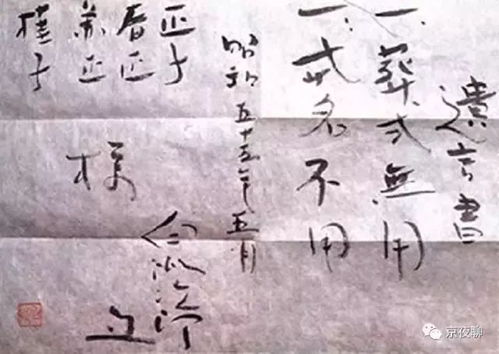 遺言書
一、葬式無用
一、戒名不用
昭和五十五年五月
白洲次郎
正子
春正
兼正
桂子
様
京夜聊